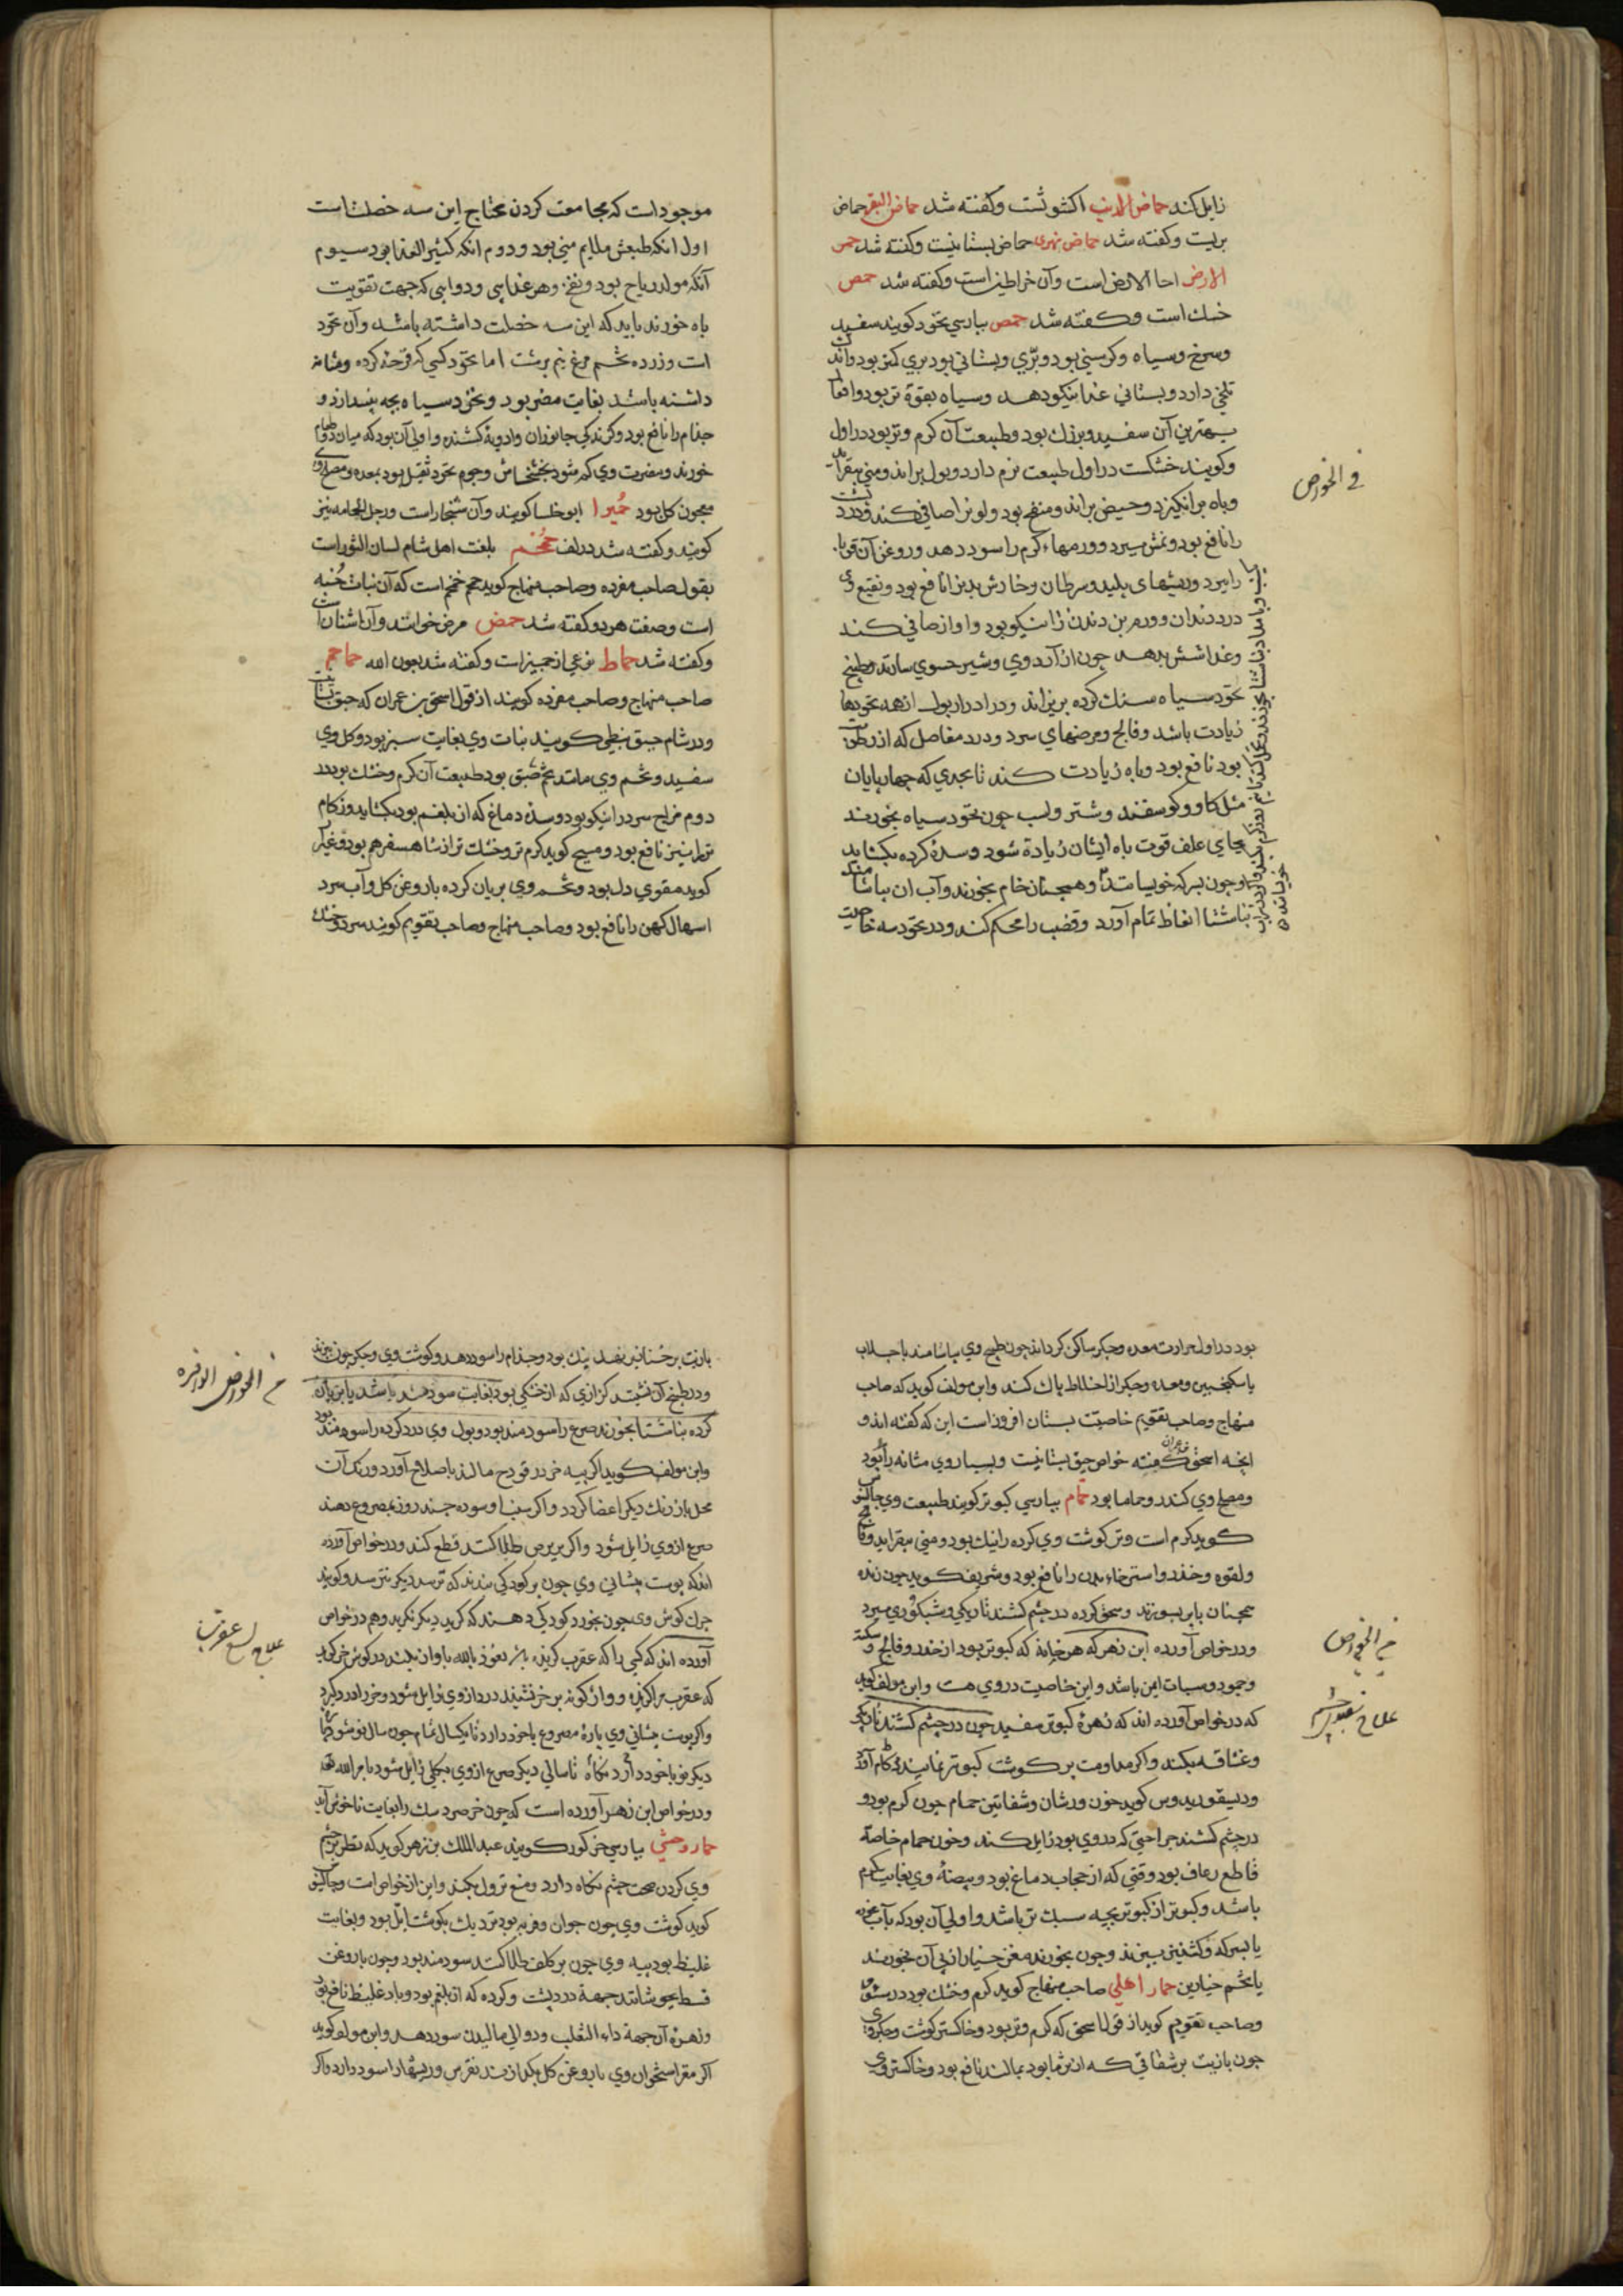 زایل کند حماض الارنب اکشوثست وکفته شد حماض البقر حماض
بریست وکفته شد حماض نهری حماض بستانیست وکفته شد حمص
الارض احا الارض است وآن خراطین است وکفته شد حمص
خسك است وکفته شد حمص بپارسی نخود کویند سفید
وسرخ وسیاه وکرسنی بود وبرّی وبستانی بود بری کمتر بود واندك
تلخی دارد وبستانی غذا نیکو دهد وسیاه بقوة تر بود وافعا
بهترین آن سفید وبزرك بود وطبیعت آن کرم وتر بود در اول
وکویند خشکست در اول طبیعت نرم دارد وبول براند ومنی بیفزاید
وباه برانکیزد وحیض براند ومنفخ بود ولونرا صافی کند ودرد پشت
را نافع بود ونمش ببرد وورمهاء کرم را سود دهد وروغن آن قوبا
را ببرد وریشهای پلید وسرطان وخارش بدنرا نافع بود ونقیع وی
درد دندان وورم بن دندن را نیکو بود واواز صافی کند
وغذا شش بدهد چون از آرد وی وشیر حسوی سازند وطبیخ
نخود سیاه سنك کرده بریزاند ودر ادرار بول از همه نخودها
زیادت باشد وفالج ومرضهای سرد ودرد مفاصل که از رطوبت
بود نافع بود وباه زیادت کند تا بحدی که چهارپایان
مثل کاو وکوسفند وشتر واسب چون نخود سیاه بخورند
بجای علف قوت باه ایشان زیادة شود وسدۀ کرده بکشاید
وچون بسرکه خویسانند وهمچنان خام بخورند وآب ان بیاشامند
بناشتا انغاظ تمام آورد وقضیب را محکم کند ودر نخود سه خاصیت
فی الخواص
موجود است که مجامعت کردن محتاج این سه خصلتاست
اول انکه طبعش ملایم منی بود ودوم انکه کثیر الغذا بود سیوم
آنکه مولد ریاح بود ونفخ وهر غذایی ودوایی که جهت تقویت
باه خورند باید که این سه خصلت داشته باشد وآن نخود
است وزرده تخم مرغ نیم برشت اما نخود کسی که قرحۀ کرده ومثانه
داشته باشد بغایت مضر بود ونخود سیاه بچه بیندازد و
جذام را نافع بود وکزندکی جانوران وادویۀ کشنده واولی آن بود که میان دو طعام
خورند ومضرت وی کم شود بخشخاش وجرم نخود ثقیل بود بمعده ومصلح وی
معجون کل بود حمیرا ابوخلسا کویند وآن شنجار است ورجل الحمامه نیز
کویند وکفته شد در الف حمحم بلغت اهل شام لسان الثور است
بقول صاحب مفرده وصاحب منهاج کوید حمحم خمخم است که آن نبات خُبّه
است وصفت هر دو کفته شد حمض مرض خوانند وآن اشنان است
وکفته شد حماط نوعی از جمیز است وکفته شد بعون الله حماحم
صاحب منهاج وصاحب مفرده کویند از قول اسحق بن عمران که حبق بستانیست
ودر شام حبق نبطی کویند نبات وی بغایت سبز بود وکل وی
سفید وتخم وی مانند تخم حبق بود طبیعت آن کرم وخشك بود در
دوم مزاج سرد را نیکو بود وسدۀ دماغ که از بلغم بود بکشاید وزکام
ترا نیز نافع بود ومسیح کوید کرم تر وخشك تر از شاهسفرهم بود وغیر آن
کوید مقوی دل بود وتخم وی بریان کرده با روغن کل وآب سرد
اسهال کهن را نافع بود وصاحب منهاج وصاحب تقویم کویند سرد وخشك
بود در اول حرارت معده وجکر ساکن کرداند چون طبخ وی بیاشامند با جلاب
یا سکنجبین ومعده وجکر از اخلاط پاك کند وابن مولف کوید که صاحب
منهاج وصاحب تقویم خاصیّت بستان افروز است این که کفته اند و
انچه اسحق عمران کفته خواص حبق بستانیست وبسیار وی مثانه را بود
ومصلح وی کندر وحماما بود حمام بپارسی کبوتر کویند طبیعت وی جالینوس
کوید کرم است وتر کوشت وی کرده را نیك بود ومنی بیفزاید وفالج
ولقوه وخدر واسترخاء بدن را نافع بود وشریف کوید چون زنده
همچنان با پر بسوزند وسحق کرده در چشم کشند تاریکی وشبکوری ببرد
ودر خواص آورده ابن زهر که هر خانه که کبوتر بود از خدر وفالج وسکته
وجمود وسبات ایمن باشد واین خاصیت در وی هست وابن مولف کوید
که در خواص آورده اند که زهرۀ کبوتر سفید چون در چشم کشند تاریکی
وغشاقه بکند واکر مداومت بر کوشت کبوتر نمایند کام آورد
ودیسقوریدوس کوید خون ورشان وشفانین حمام چون کرم بود و
در چشم کشند جراحتی که در وی بود زایل کند وخون حمام خاصة
قاطع رعاف بود وقتی که از حجاب دماغ بود وبیضۀ وی بغایت کرم
باشد وکبوتر از کبوتر بچه سبك تر باشد واولی آن بود که بآب غوره
یا بسرکه وکشنیز بپزند وچون بخورند مغز خیار از پی آن بخورند
یا تخم خیارین حمار اهلی صاحب منهاج کوید کرم وخشك بود در سیوم
وصاحب تقویم کوید از قول اسحق که کرم وتر بود وخاکستر کوشت وجکر وی
چون با زیت بر شقاقی که از سرما بود بمالند نافع بود وخاکستر وی
فی الخواص
علاج سفیدی چشم
با زیت بر خنازیر نهند نیك بود وجذام را سود دهد وکوشت وی وجکر چون بپزند
ودر طبیخ آن نشیند کزازی که از خشکی بود بغایت سودمند باشد یا بریان
کرده بناشتا بخورند صرع را سودمند بود وبول وی درد کرده را سودمند بود
وابن مولف کوید اکر پیه خر در قروح مالند باصلاح آورد ورنك آن
محل باز رنك دیکر اعضا کردد واکر سم او سوده چند روز بمصروع دهند
صرع از وی زایل شود واکر بر برص طلا کنند قطع کند ودر خواص آورده
اند که پوست پیشانی وی چون بر کودکی بندند که ترسد دیکر نترسد وکویند
چرك کوش وی چون بخورد کودکی دهند که کرید دیکر نکرید وهم در خواص
آورده اند که کسی را که عقرب کزیده باشد نعوذ بالله بآواز بلند در کوش خر کوید
که عقرب مرا کزیده وواژکونه بر خر نشیند درد از وی زایل شود وخر را درد کیرد
واکر پوست پیشانی وی پارۀ مصروع با خود دارد تا یکسال تمام چون سال نو شود
دیکر نو با خود دارد نکاه تا سالی دیکر صرع از وی بکلی زایل شود بامر الله تعالی
ودر خواص ابن زهر آورده است که چون خر صرد سك را بغایت ناخوش آید
حمار وحشی بپارسی خر کور کویند عبد الملك بن زهر کوید که نظر بر چشم
وی کردن صحت چشم نکاه دارد ومنع نزول بکند واین از خواص است وجالینوس
کوید کوشت وی چون جوان وفربه بود نزدیك بکوشت ایّل بود وبغایت
غلیظ بود پیه وی چون بر کلف طلا کنند سودمند بود وچون با روغن
قسط بجوشانند جهة درد پشت وکرده که از بلغم بود وباد غلیظ نافع بود
وزهرۀ آن جهة داء الثعلب ودوالی مالیدن سود دهد وابن مولف کوید
اکر مغز استخوان وی با روغن کل بکدازند نقرس وریشها را سود دارد واکر
فی الخواص الوافره
علاج لسع عقرب